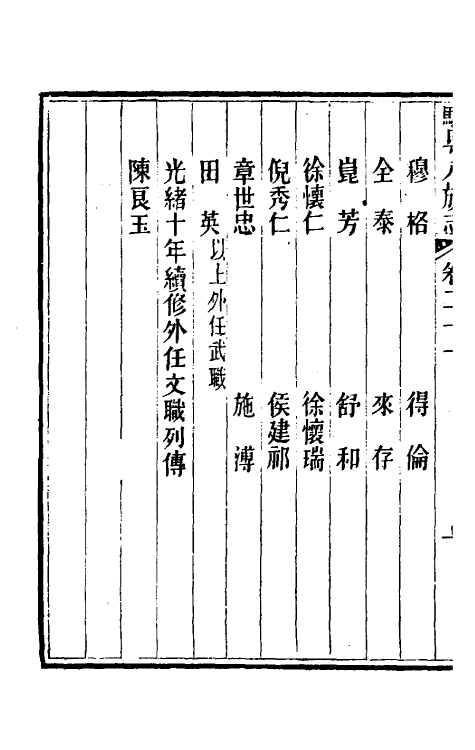 駐粤八旗志 卷二十一
穆格 得倫
全泰 來存
崑芳 舒和
徐懷仁 徐懷瑞
倪秀仁 侯建邟
章世忠 施溥
田英以上外任武職
光緒十年續修外任文職列傳
陳良玉